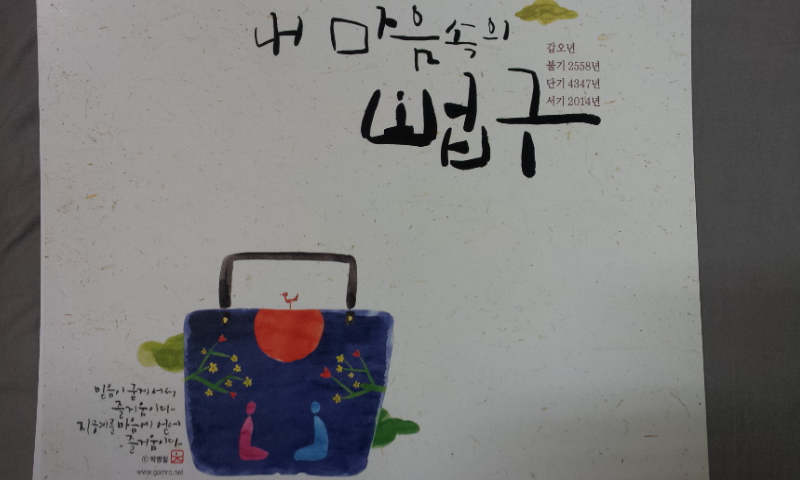 내 마음속의
법구
갑오년
불기 2558년
단기 4347년
서기 2014년
믿음이 굳게 서니
즐거움이다.
지혜를 마음에 얻어
즐거움이다.
© 박병철
www.gamro.net